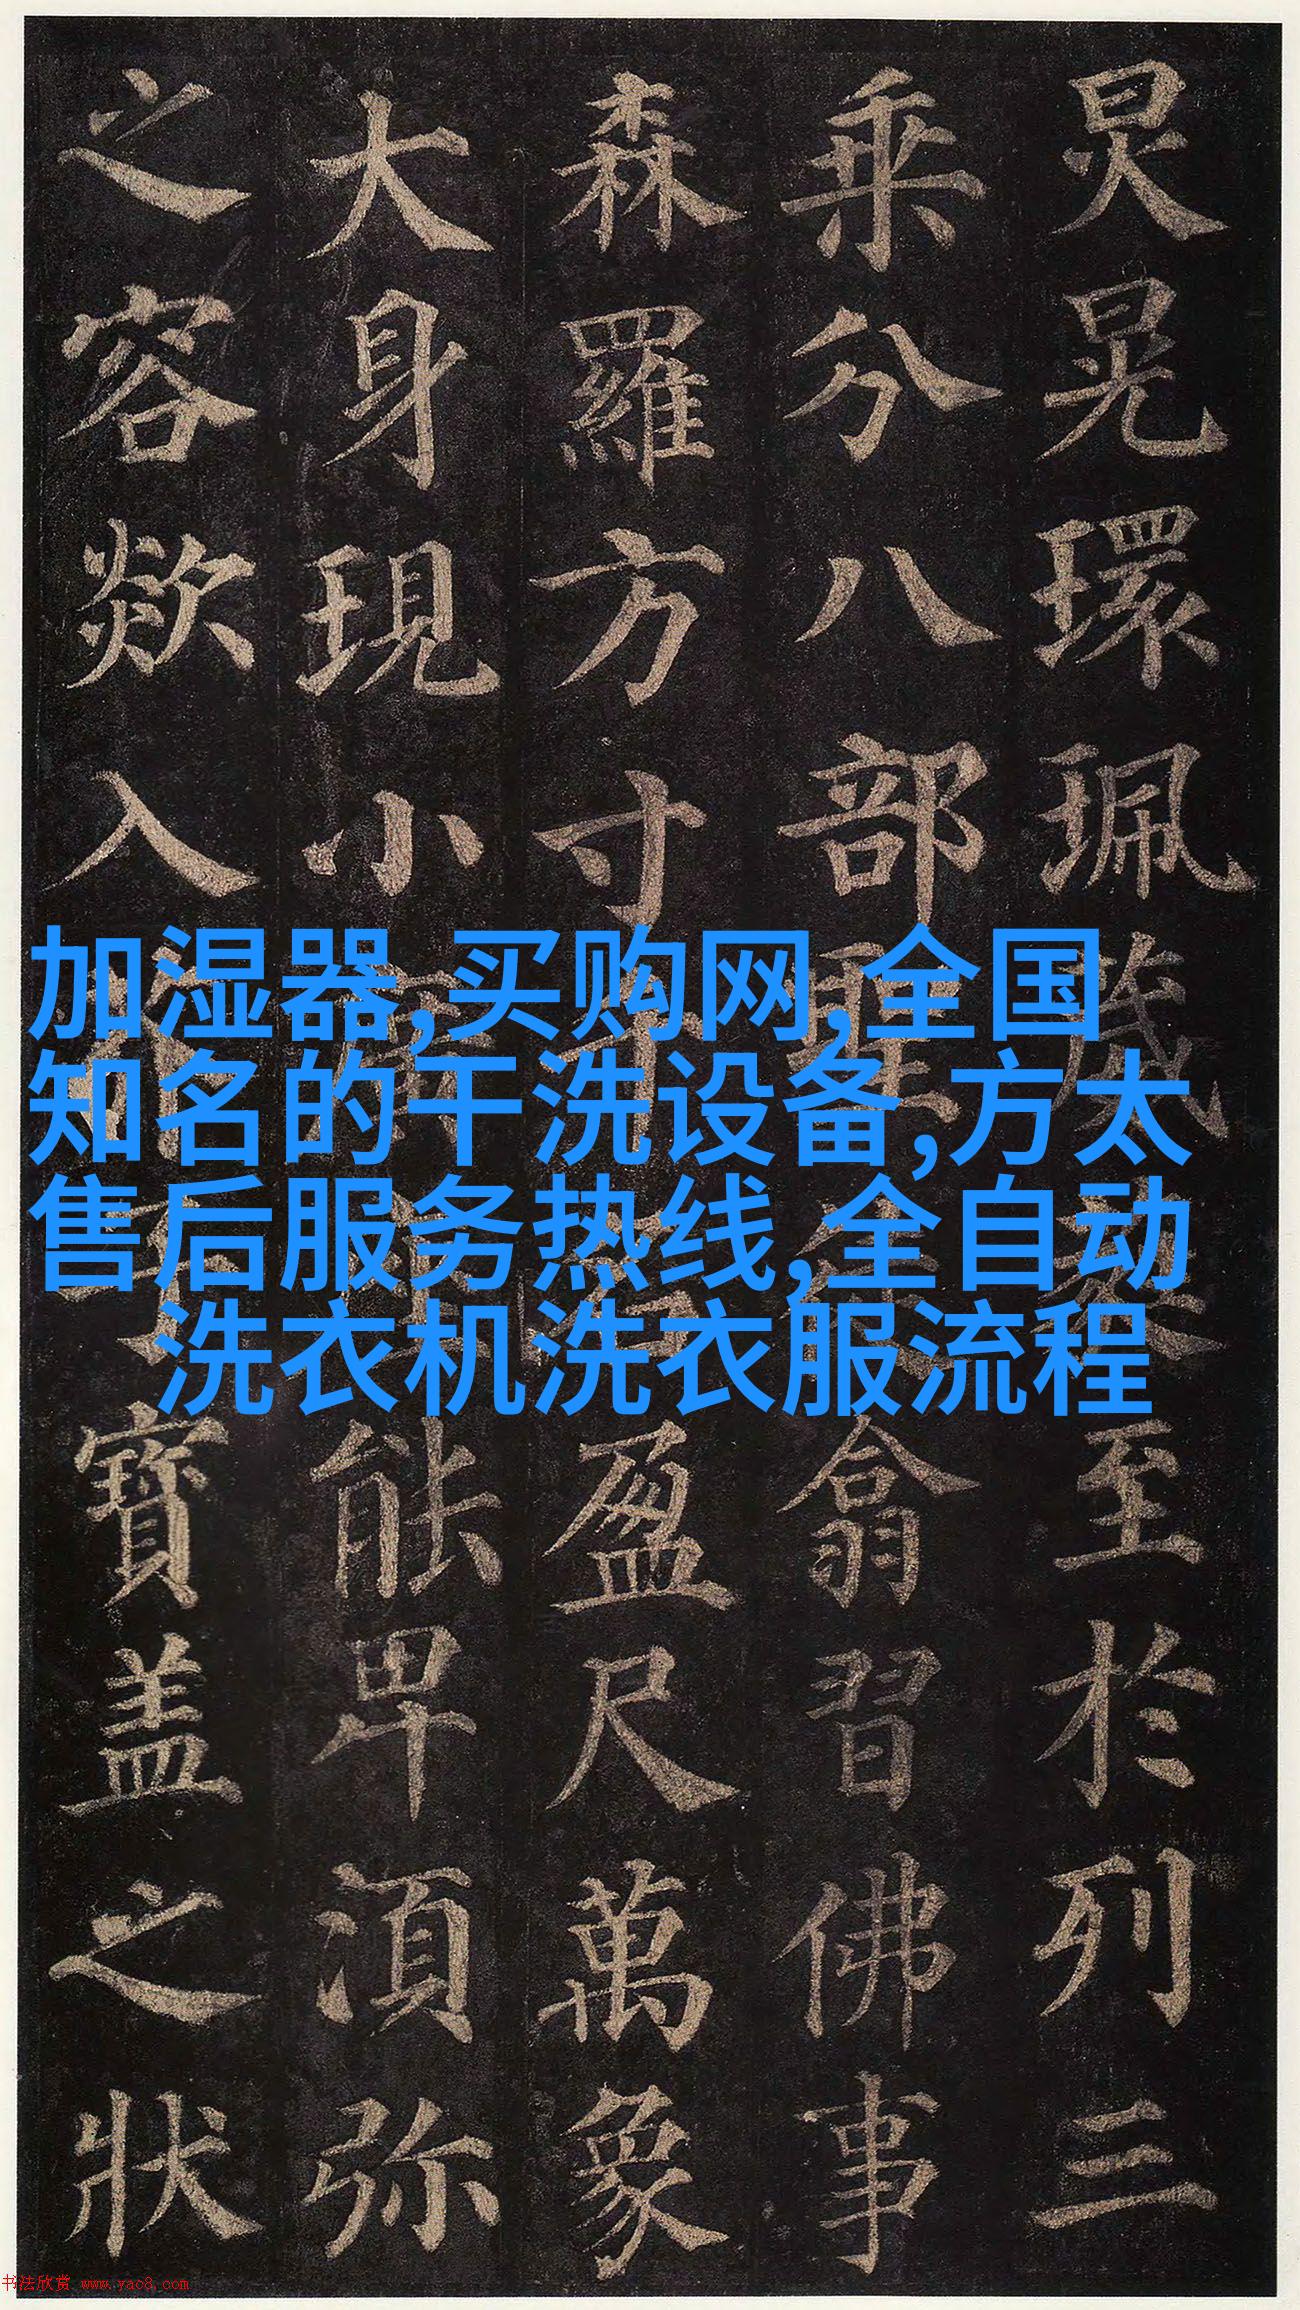 炅晃環珮葳蕤至於列三
乘分八部聖徒翕習佛事
森羅方寸千名盈尺萬象
大身現小廣座能卑湏弥
之容欻入芥子寶盖之狀
加湿器,买购网,全国
知名的干洗设备,方太
售后服务热线,全自动
洗衣机洗衣服流程
书法欣赏 www.yac8.com